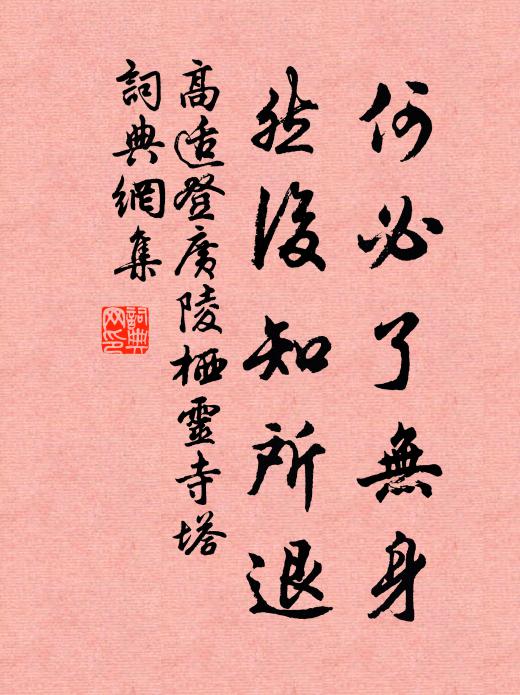 何必了無身
然後知所退
高适登廣陵栖靈寺塔
詞典網集
詞典
网印